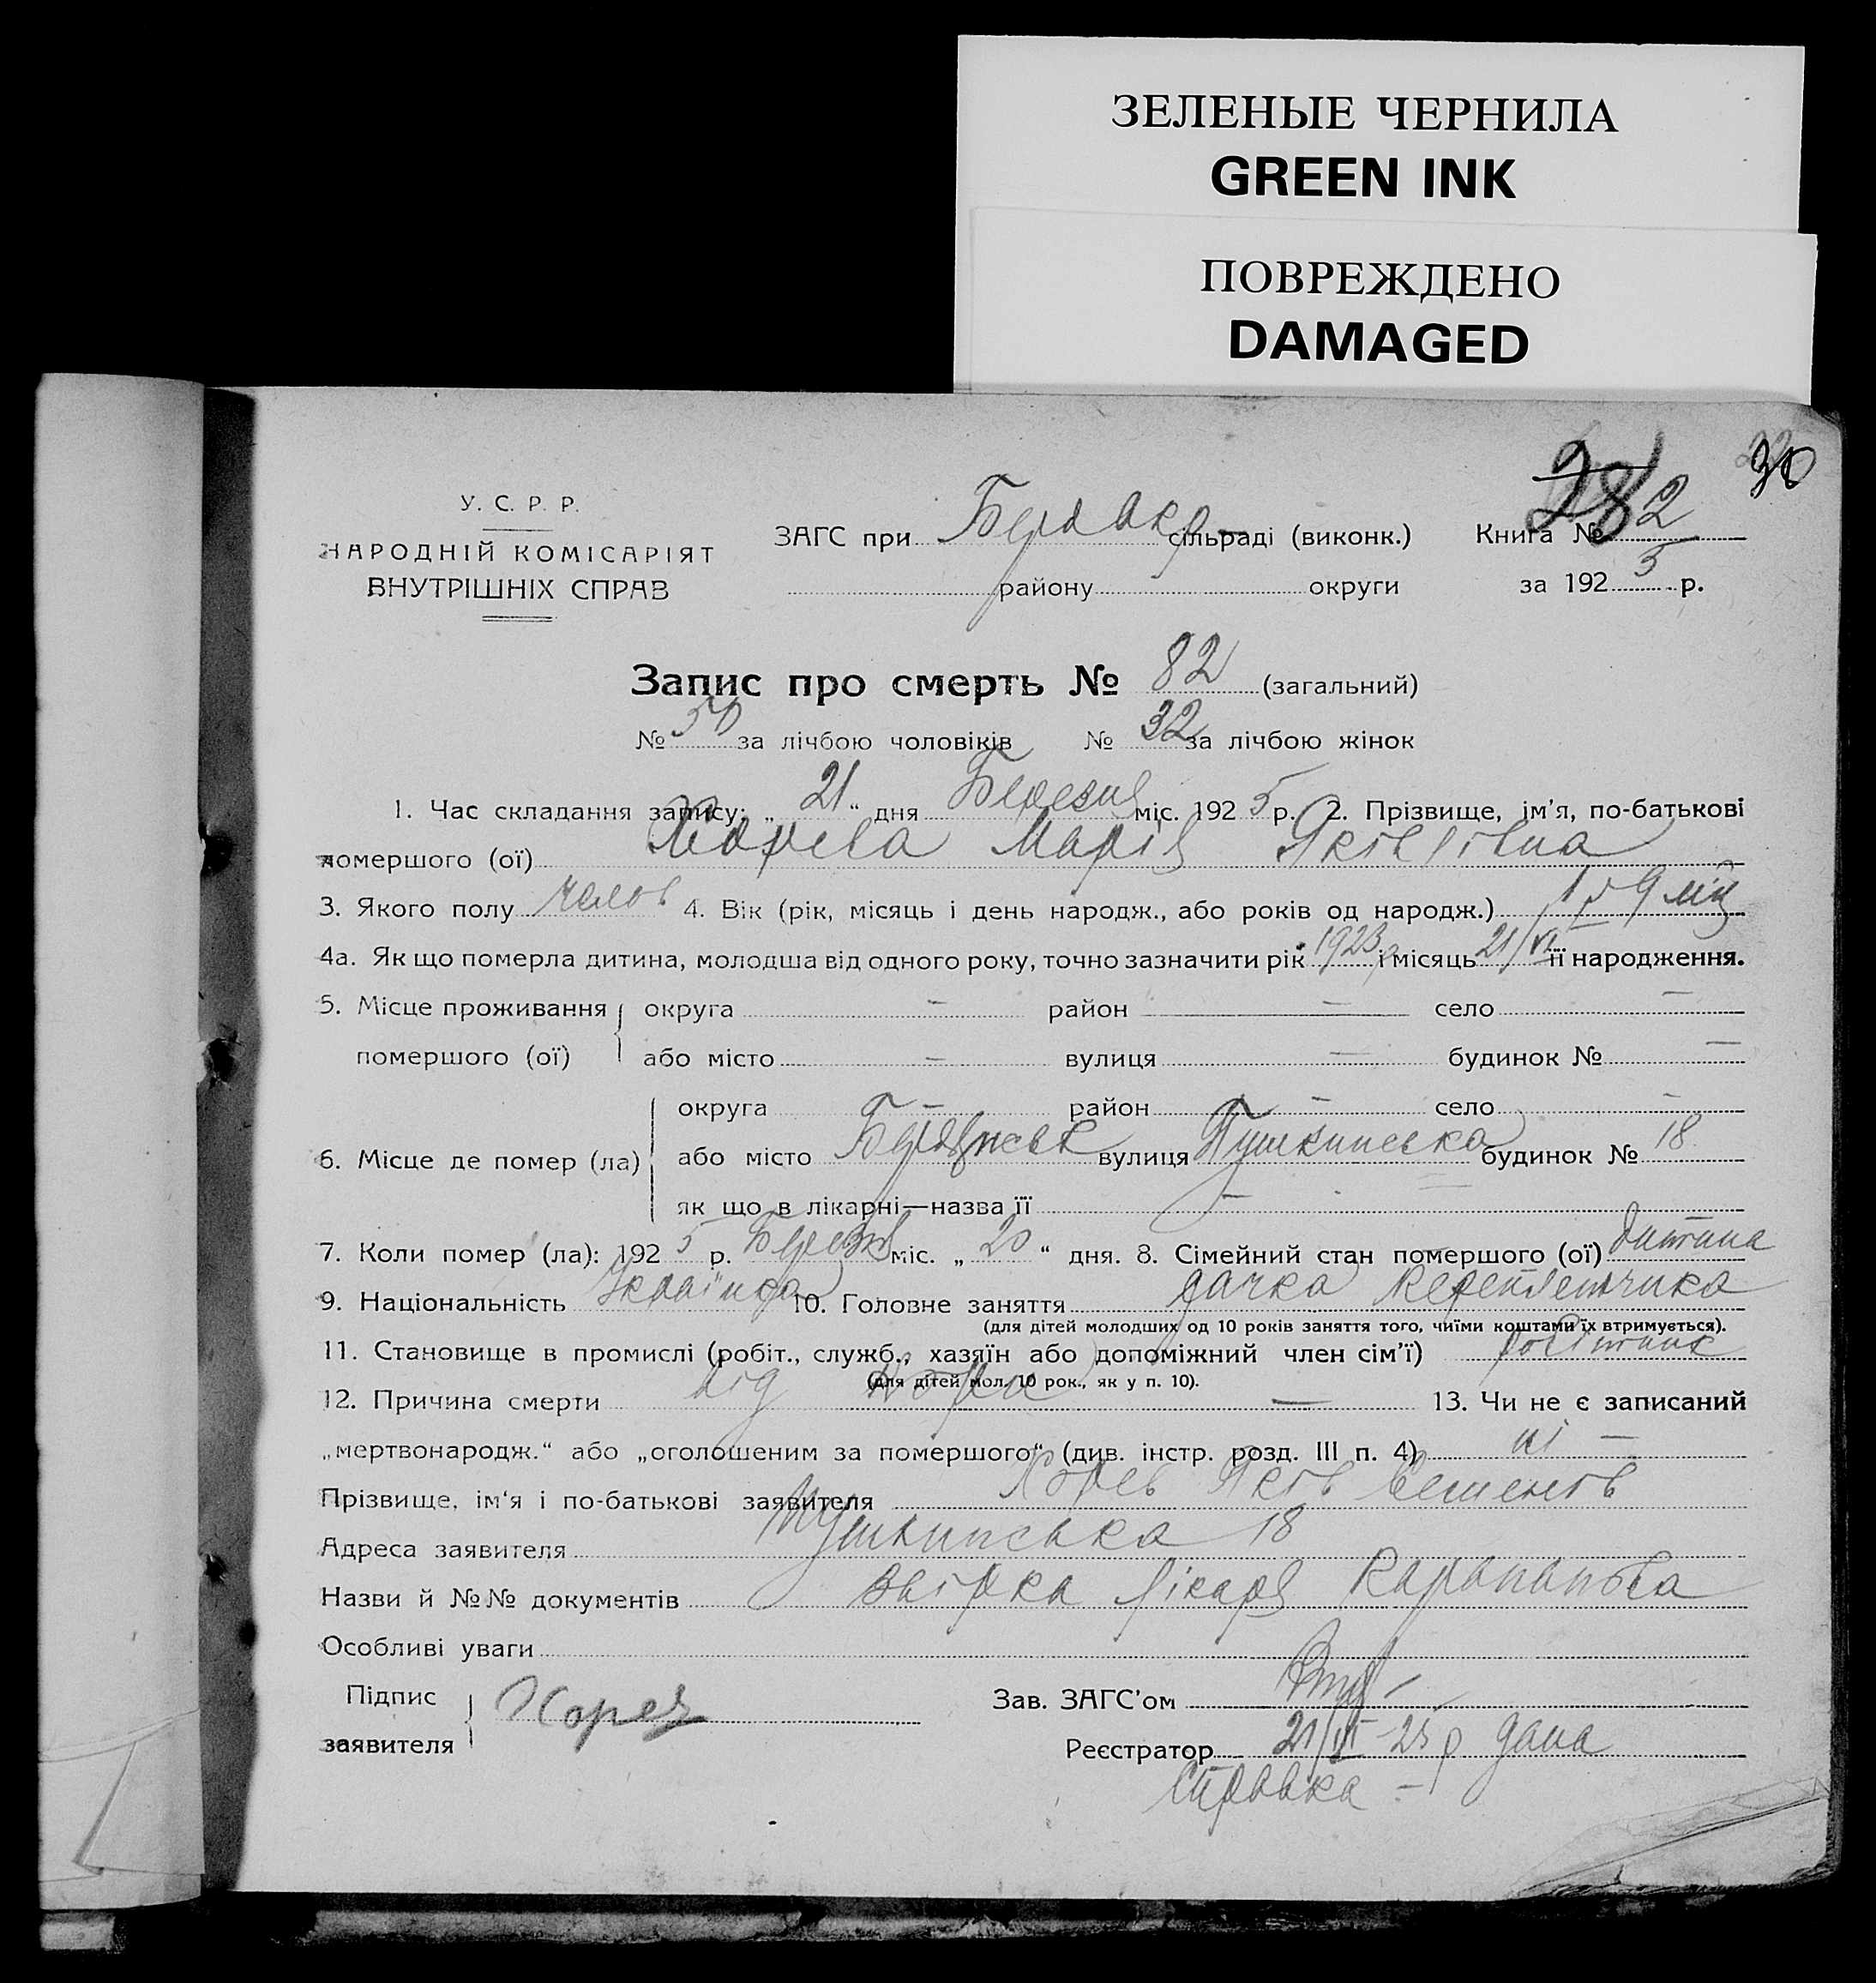 ЗЕЛЕНЫЕ ЧЕРНИЛА
GREEN INK
ПОВРЕЖДЕНО
DAMAGED
30
У. С. Р. Р.
НАРОДНІЙ КОМІСАРІЯТ
ВНУТРІШНІХ СПРАВ
ЗАГС при сільраді (виконк.) Книга № 2
району округи за 1925 р.
Запис про смерть № 82 (загальний)
№ 50 за лічбою чоловіків № 32 за лічбою жінок
1. Час складання запису: „ 21 “ дня Березня міс. 1925 р. 2. Прізвище, ім’я, по-батькові
помершого (ої) Хорева Марія Яківлівна
3. Якого полу 4. Вік (рік, місяць і день народж., або років од народж.) 1 р 9 міц
4а. Як що померла дитина, молодша від одного року, точно зазначити рік 1923 і місяць 21/VI її народження.
5. Місце проживання округа – район – село –
помершого (ої) або місто – вулиця – будинок № –
округа – район – село –
6. Місце де помер (ла) або місто Бердянськ вулиця Пушкинська будинок № 18
як що в лікарні—назва її –
7. Коли помер (ла): 1925 р. Березня міс. „ 20 “ дня. 8. Сімейний стан помершого (ої) дитина
9. Національність Українка 10. Головне заняття дачка
(для дітей молодших од 10 років заняття того, чиїми коштами їх втримується).
11. Становище в промислі (робіт., служб., хазяїн або допоміжний член сім’ї)
(для дітей мол. 10 рок., як у п. 10).
12. Причина смерти від кора – 13. Чи не є записаний
„мертвонародж.“ або „оголошеним за помершого“ (див. інстр. розд. III п. 4) ні –
Прізвище, ім‘я і по-батькові заявителя Хорев Яків Семенов
Адреса заявителя Пушкинська 18
Назви й №№ документів звірка лікаря
Особливі уваги
Підпис Зав. ЗАГС’ом
заявителя Хорев
Реєстратор 21/III-25 р дана
справка –